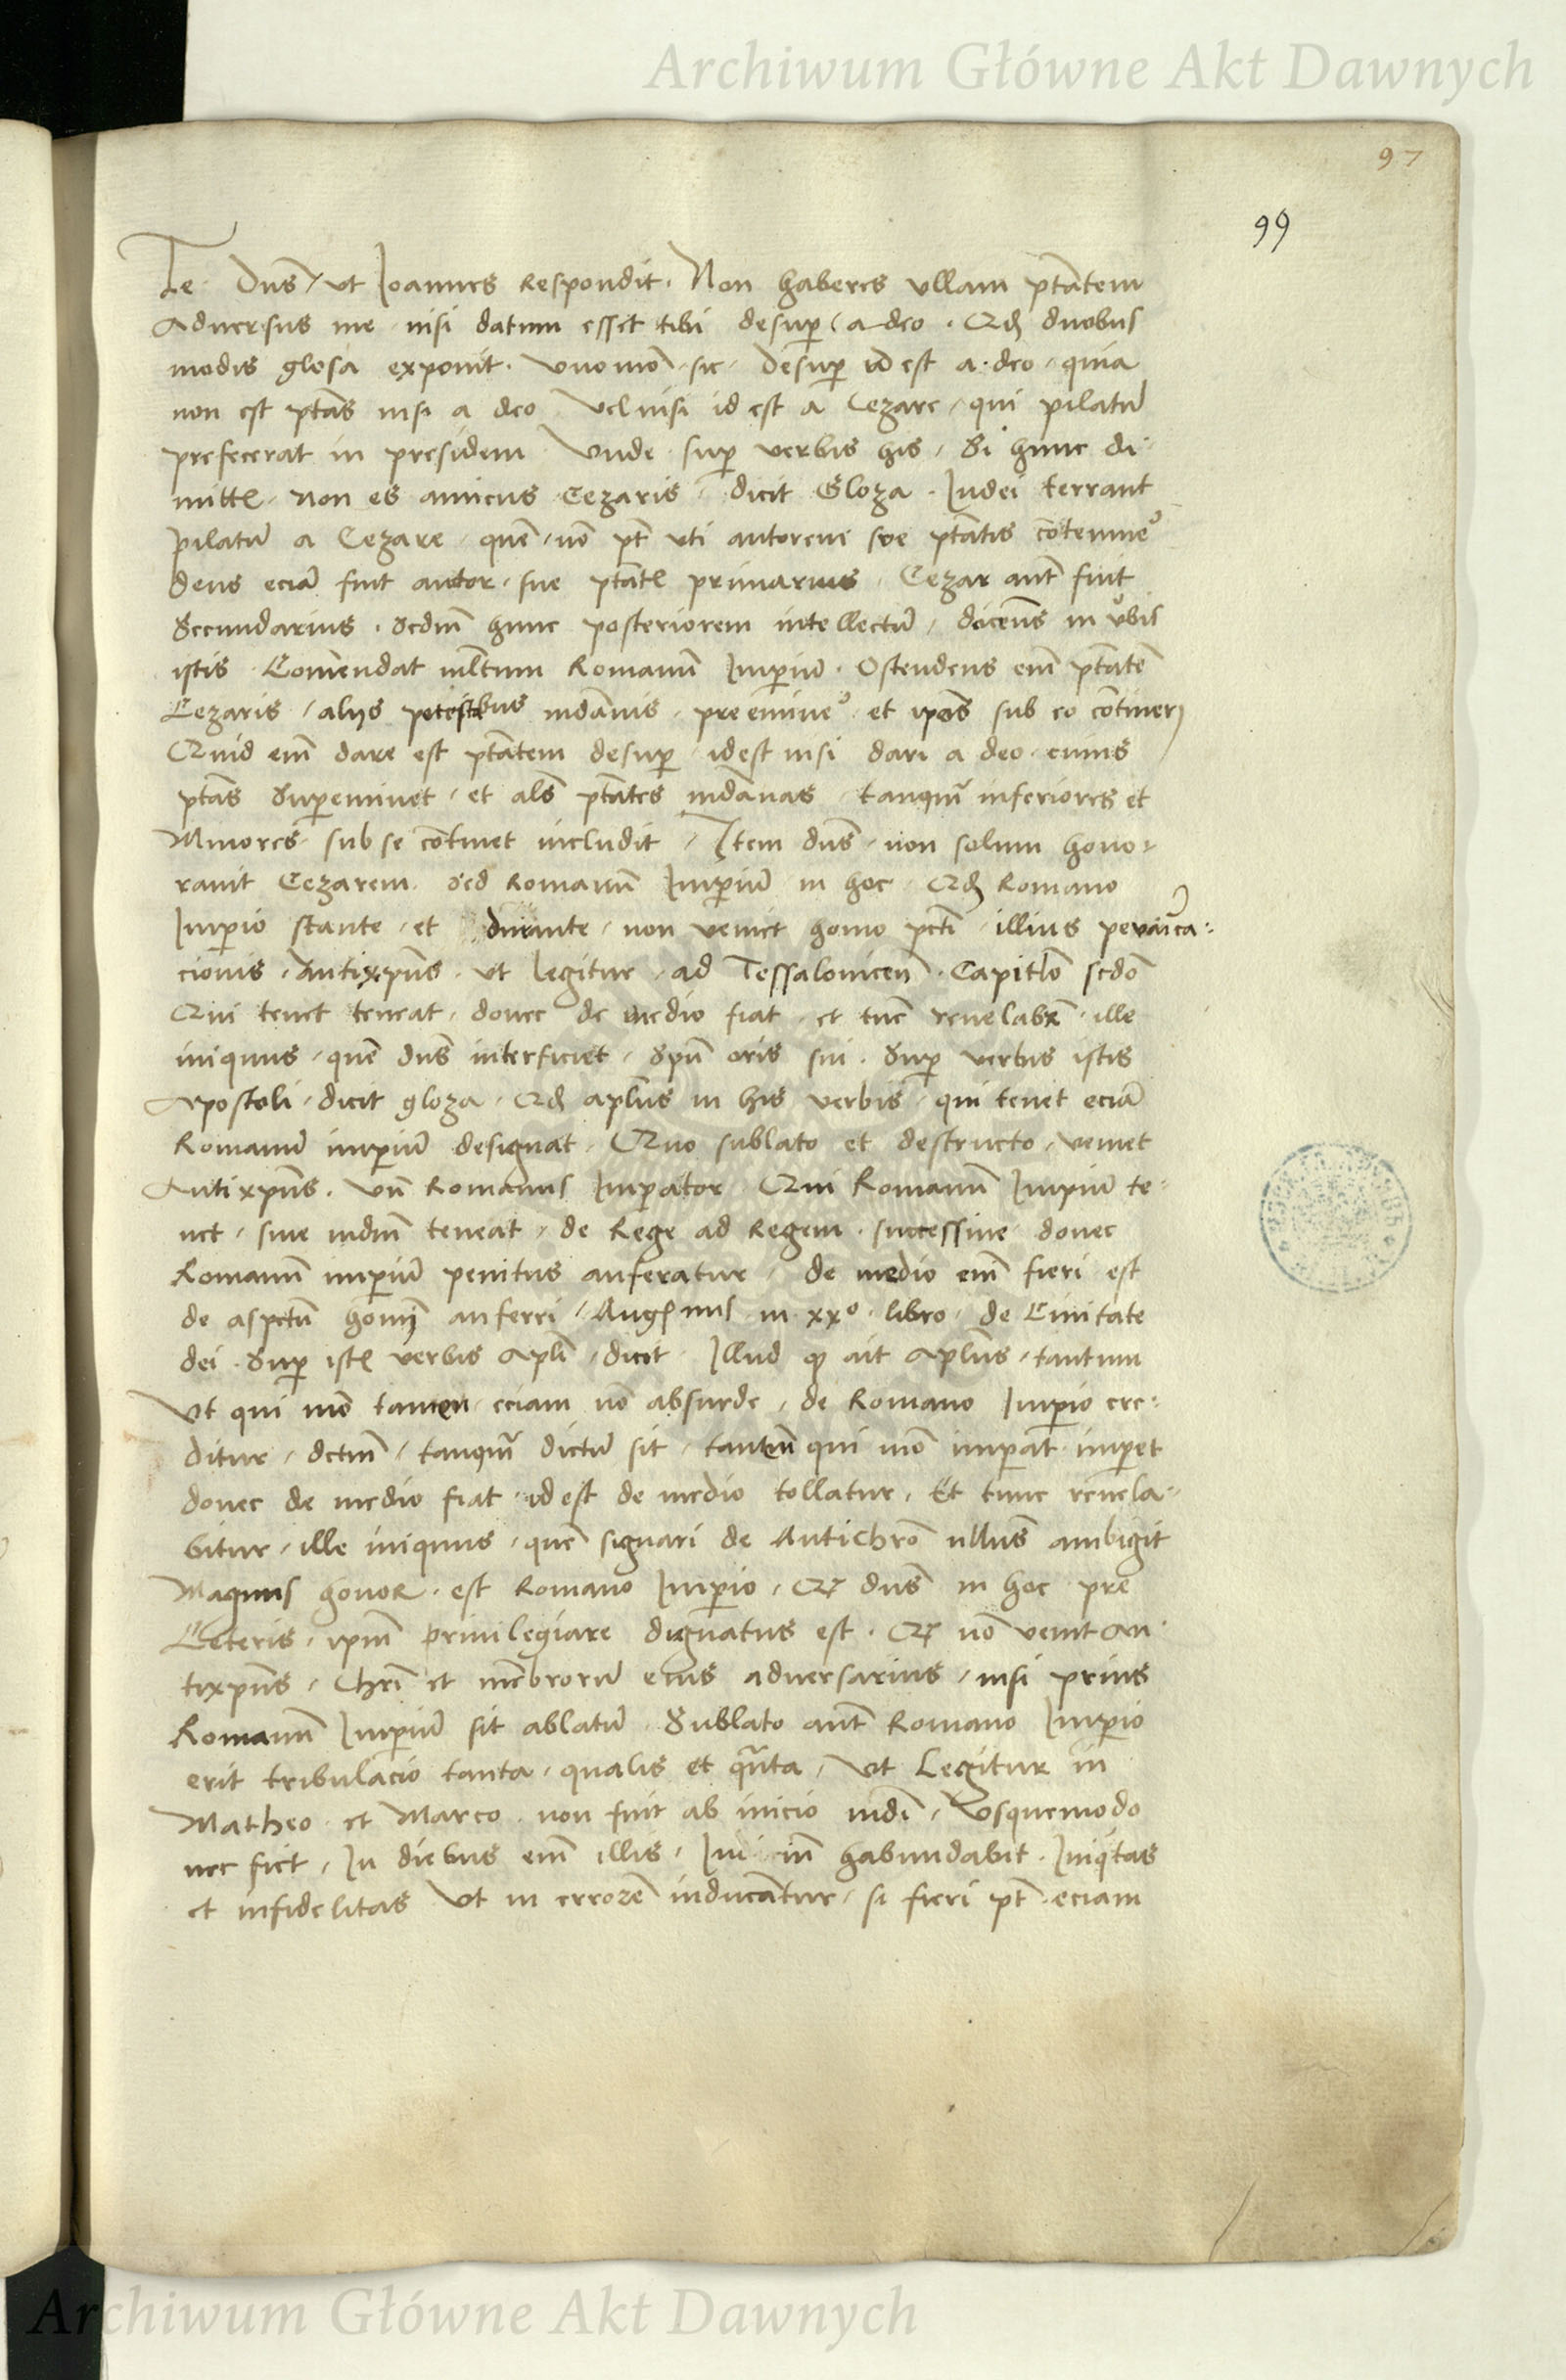 Archiwum Główne Akt Dawnych
97
99
Te Dns, ut Ioannes Respondit. Non haberes ullam ptatem
Adversus me nisi datum esset tibi desup a deo. Qd duobus
modis glosa exponit. Uno mo sic desup id est a deo quia
non est ptas nisi a deo Vel nisi id est a Cezare qui pilatu
prefecerat in presidem Unde sup verbis his, Si hunc di-
mitt, non es amicus Cezaris dicit Gloza. Iudei terrant
pilatu a Cezare que no pt uti autorem sve ptatis conteme
deus ecia fuit autor sue ptat primarius, Cezar aut fuit
Secundarius. Scdm hunc posteriorem intellectu, docens in vbis
istis Comendat mltum Romanu Imperiu. Ostendens em ptate
Cezaris, alijs potestibus mdanis pre emine et ipas sub eo contineri
Quid em dare est ptatem desup id est nisi dari a deo cuius
ptas Superminet, et als ptates mdanas tanqm inferiores et
Minores sub se continet includit, Item dns non solum hono-
ravit Cezarem Sed Romanu Imperiu in hoc Qd Romano
Imperio stante et durante, non veniet homo pcti illius pevaica-
cionis Antixpus. ut legitur, ad Tessalonicen Capitlo scdo
Qui tenet teneat, donec de medio fiat et tuc revelabr ille
iniquus, que dns interficiet, Spu oris sui. Sup verbis istis
Apostoli, dicit gloza. Qd aplus in his verbis qui tenet ecia
Romanu imperiu designat. Quo sublato et destructo, veniet
Antixpus. Un Romanus Imperator Qui Romanu Imperiu te-
net, sive mdm teneat, de Rege ad Regem successive donec
Romanu imperiu penitus auferatur, de medio em fieri est
de aspctu homi auferri, Augstinus in xxo libro de Civitate
dei Sup ist verbis Apli, dicit Illud q ait Aplus, tantum
Ut qui mo tamen eciam no absurde, de Romano Imperio cre-
ditur, dctm, tanqm dictu sit, tantu qui mo imperat imperet
donec de medio fiat id est de medio tollatur, Et tunc revela-
bitur ille iniquus, que signari de Antichro nllus ambigit
Magnus honor est Romano Imperio, Q dns in hoc pre
Ceteris, ipm privilegiare dignatus est. Q no venit an-
tixpus, Chri et mebroru eius adversarius, nisi prius
Romanu Imperiu sit ablatu Sublato aut Romano Imperio
erit tribulacio tanta, qualis et qnta, Ut Legitur in
Matheo et Marco non fuit ab inicio mdi, Usquemodo
nec fiet, In diebus em illis, habundabit Iniqtas
et infidelitas Ut in errore inducantur, si fieri pt eciam
Archiwum Główne Akt Dawnych